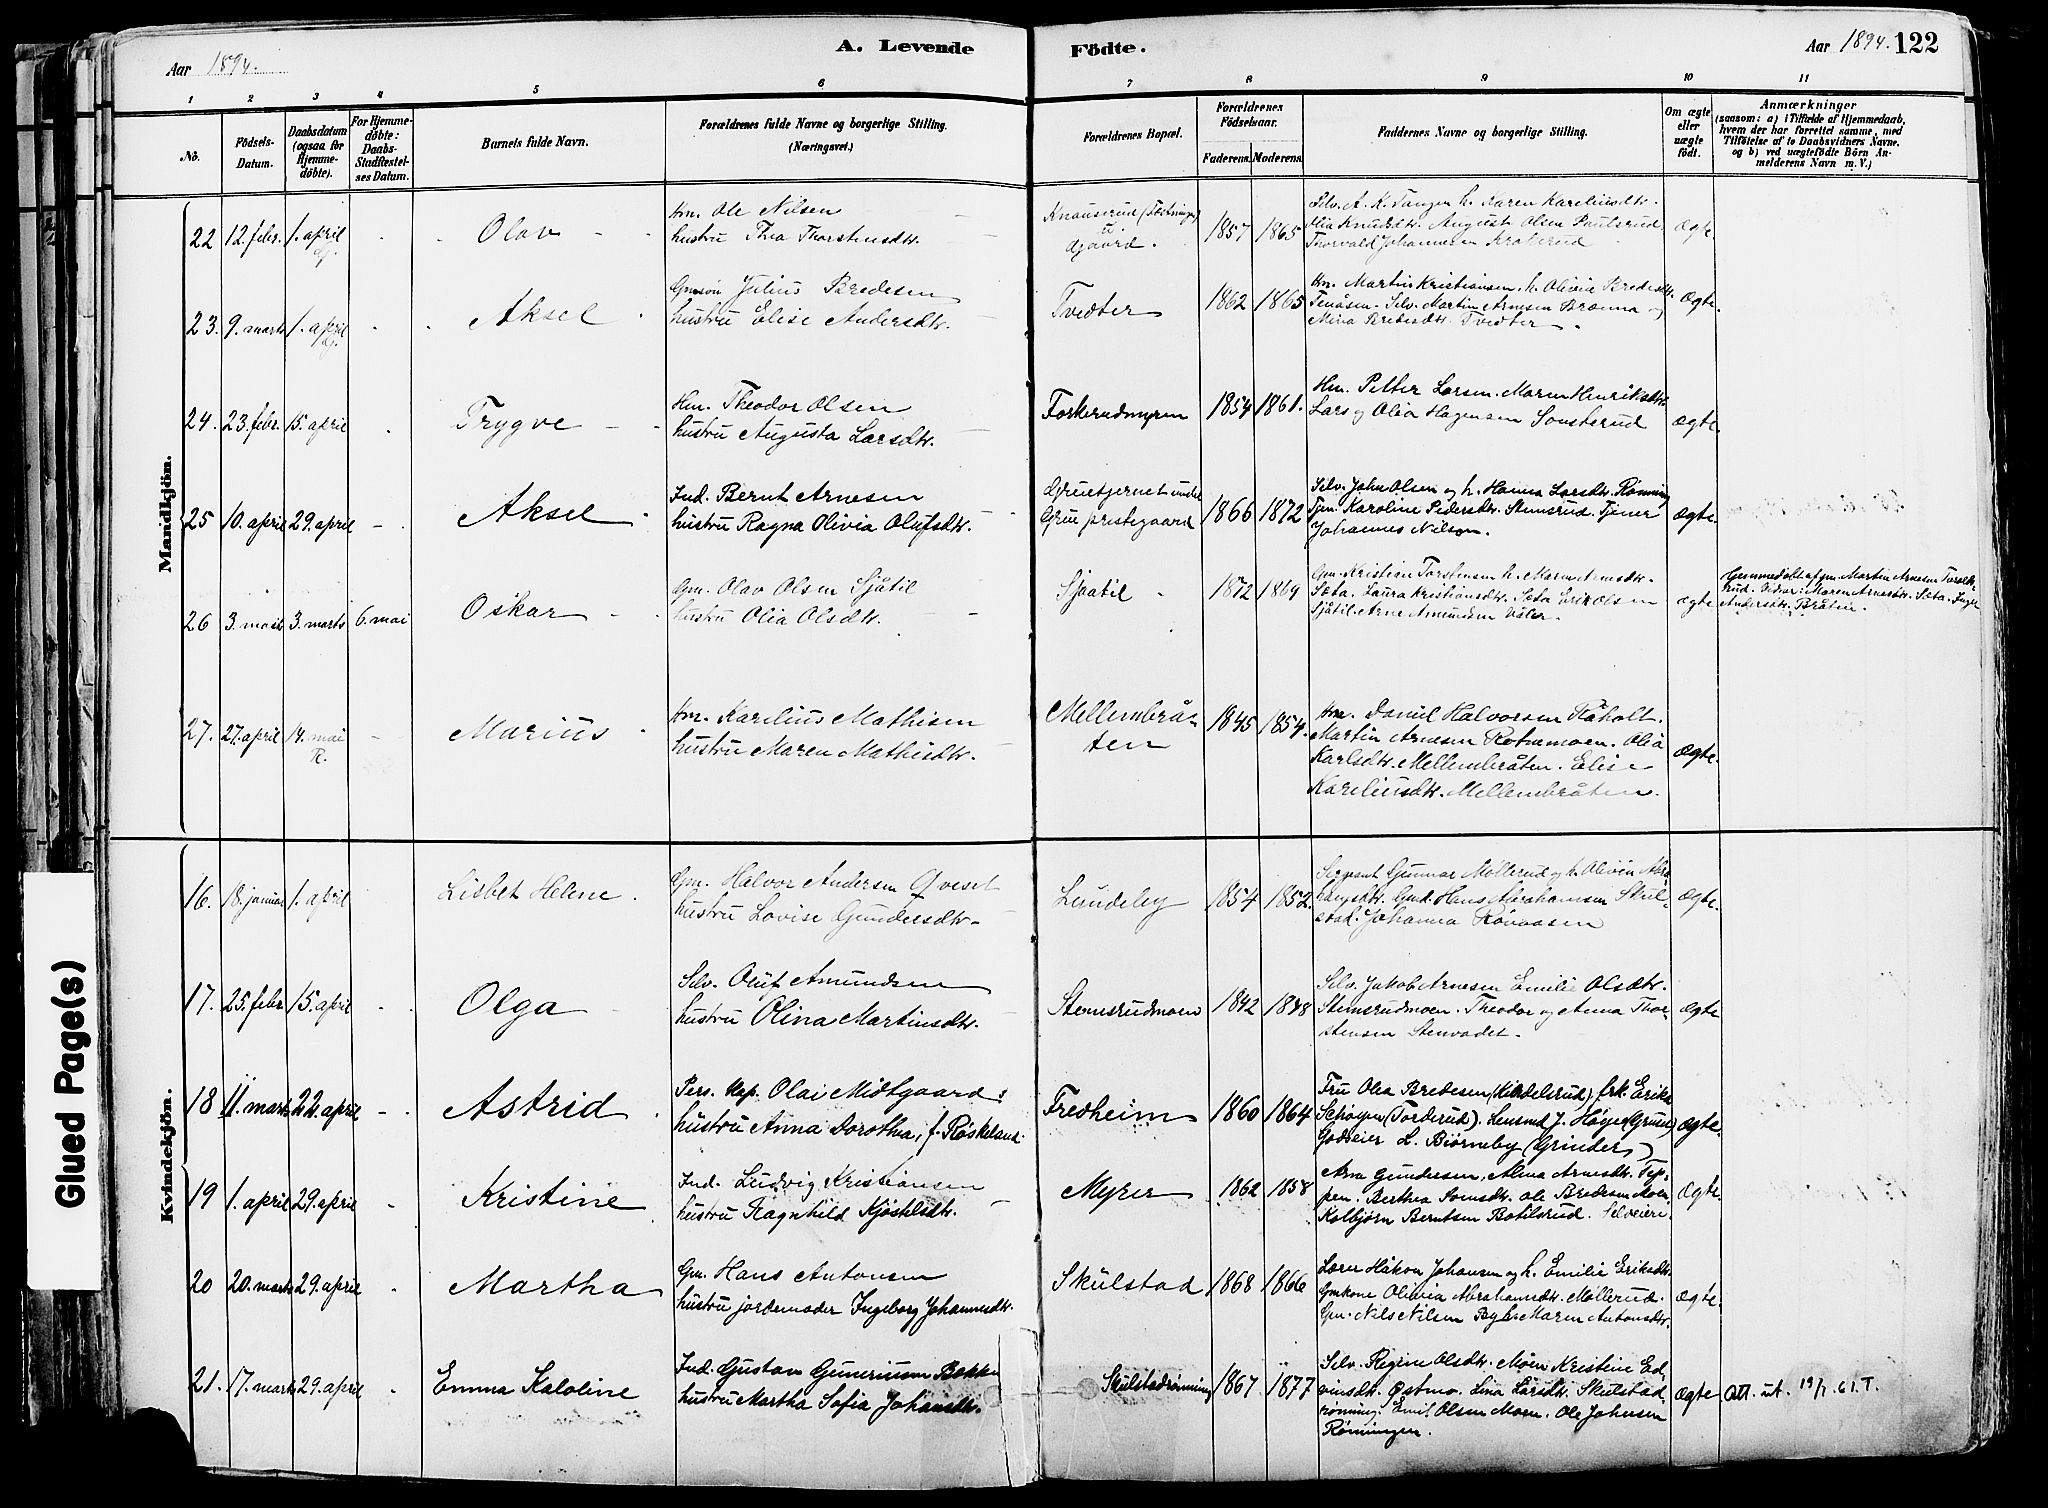 Aar 1894. A. Levende Födte. Aar 1894. 122
1 2 3 4 5 6 7 8 9 10 11
No. Födsels-Datum. Daabsdatum (ogsaa for Hjemme-døbte). For Hjemme-døbte: Daabs-Stadfæstel-ses Datum. Barnets fulde Navn. Forældrenes fulde Navne og borgerlige Stilling. (Næringsvei.) Forældrenes Bopæl. Forældrenes Födselsaar. Faderens. Moderens. Faddernes Navne og borgerlige Stilling. Om ægte eller uægte født. Anmærkninger (saasom: a) i Tilfælde af Hjemmedaab, hvem der har forrettet samme, med Tilföielse af to Daabsvidners Navne. og b) ved uægtefödte Börn An-melderens Navn m. V.)
Mandkjön.
22 12. febr. 1. april Olav
Hm. Ole Nilsen
hustru Thea Thorstensdtr.
1857 1865
Selv. A. K. Tangen h. Karen Kareliusdtr.
August Olsen Paulsrud
Thorvald Johannesen
ægte.
23. 9. marts 1. april Aksel
Gmsøn Julius Bredesen
hustru Elise Andersdtr.
Tvedter 1862 1865
Hm. Martin Kristiansen. h. Olivia Bredesdtr.
Selv. Martin Arnesen Brænna og
Mina Tvedter.
Ægte.
24. 23. febr. 15. april Trygve
Hm. Theodor Olsen
hustru Augusta Larsdtr.
Forkerudmyren 1854 1861.
Hm. Petter Larsen. Maren Henriksdtr.
Lars og Olia Hagensen Sonsterud
ægte.
25 10. april 29. april Aksel
Ind. Bernt Arnesen
hustru Ragna Olivia Olufsdtr.
Gruetjernet under
Grue prestegaard
1866 1872
Selv. John Olsen og h. Hanna Larsdtr. Rønning
Tjen. Karoline Pedersdtr. Stemsrud. Tjener
Johannes Nilsen.
ægte
26 3. 3. marts 6. mai Oskar
Gm. Olav Olsen Sjåtil
hustru Olia Olsdtr.
Sjaatil 1872 1869
Gm. Kristian Torstensen h. Maren Arnesdtr.
Sæta. Laura Kristiansdtr. Sæta Erik Olsen
Sjåtil. Arne Amundsen Våler.
ægte
Hjemmedøbt af gm. Martin Arnesen
Maren Arnesdtr. Sæta. Inger
Andersdtr. Bråten.
27. 27. april 14. mai Marius
Hm. Karelius Mathisen
hustru Maren Mathisdtr.
Mellembrå-
ten
1845 1854.
Hm. Daniel Halvorsen Råholt.
Martin Arnesen Rotnemoen. Olia
Karlsdtr. Mellembråten. Elise
Kareliusdtr. Mellembråten.
Ægte.
Kvindekjön.
16. 18. januar 1. april Lisbet Helene.
Gm. Halvor Andersen Qveset
hustru Lovise Gundersdtr.
Lundeby 1854 1852.
Sergeant Gunnar Møllerud og h. Olivia Abra-
hamsdtr. Gmd. Hans Abrahamsen Skul-
stad. Johanna Rönaasen
ægte.
17. 25. febr. 15. april Olga
Selv. Oluf Amundsen
hustru Olina Martinsdtr.
Stemsrudmoen 1842 1848
Selv. Jakob Arnesen Emilie Olsdtr.
Stemsrudmoen. Theodor og Anna Thor-
stensen Stenvadet.
ægte
18 11. marts 22. april Astrid
Pers. kap. Olai Midtgaard:
hustru Anna Dorothea, f. Røskeland.
Fredheim 1860 1864
Fru Olea Bredesen (Kirdelsrud), frk. Erika
Schøyen (Torderud). Lensmd J. Høyer (Gruus)
Godseier L. Bjørneby (Grinder)
ægte.
19 1. april 29. april Kristine
Ind. Ludvig Kristiansen
hustru Ragnhild Kjöstelsdtr.
Myrer 1862 1858
Arne Gundersen. Alma Arnesdtr. Tep-
pen. Berthea Ole Bredesen Moen
Kolbjørn Berntsen Botilsrud. Selveiere
Ægte.
20 20. marts 29. april Martha
Gm. Hans Antonsen
hustru jordemoder Ingeborg Johannesdtr.
Skulstad 1868 1866
Lærer Håkon Johansen og h. Emilie Eriksdtr.
Gmkone Olivia Abrahamsdtr. Møllerud.
Gm. Nils Nilsen Maren Antonsdtr.
ægte.
21. 17. marts 29. april Emma Kaloline
Ind. Gustav Gunerium Bakken
hustru Martha Sofia Johansdtr.
Skulstadrønning 1867 1877
Selv. Regine Olsdtr. Moen Kristine Ed-
vinsdtr. Østmo. Lina Larsdtr. Skulstad-
rønning. Emil Olsen Moen. Ole Johnsen
Rønningen.
ægte
Att. ut. 19/1. 61. T.
Glued Page(s)